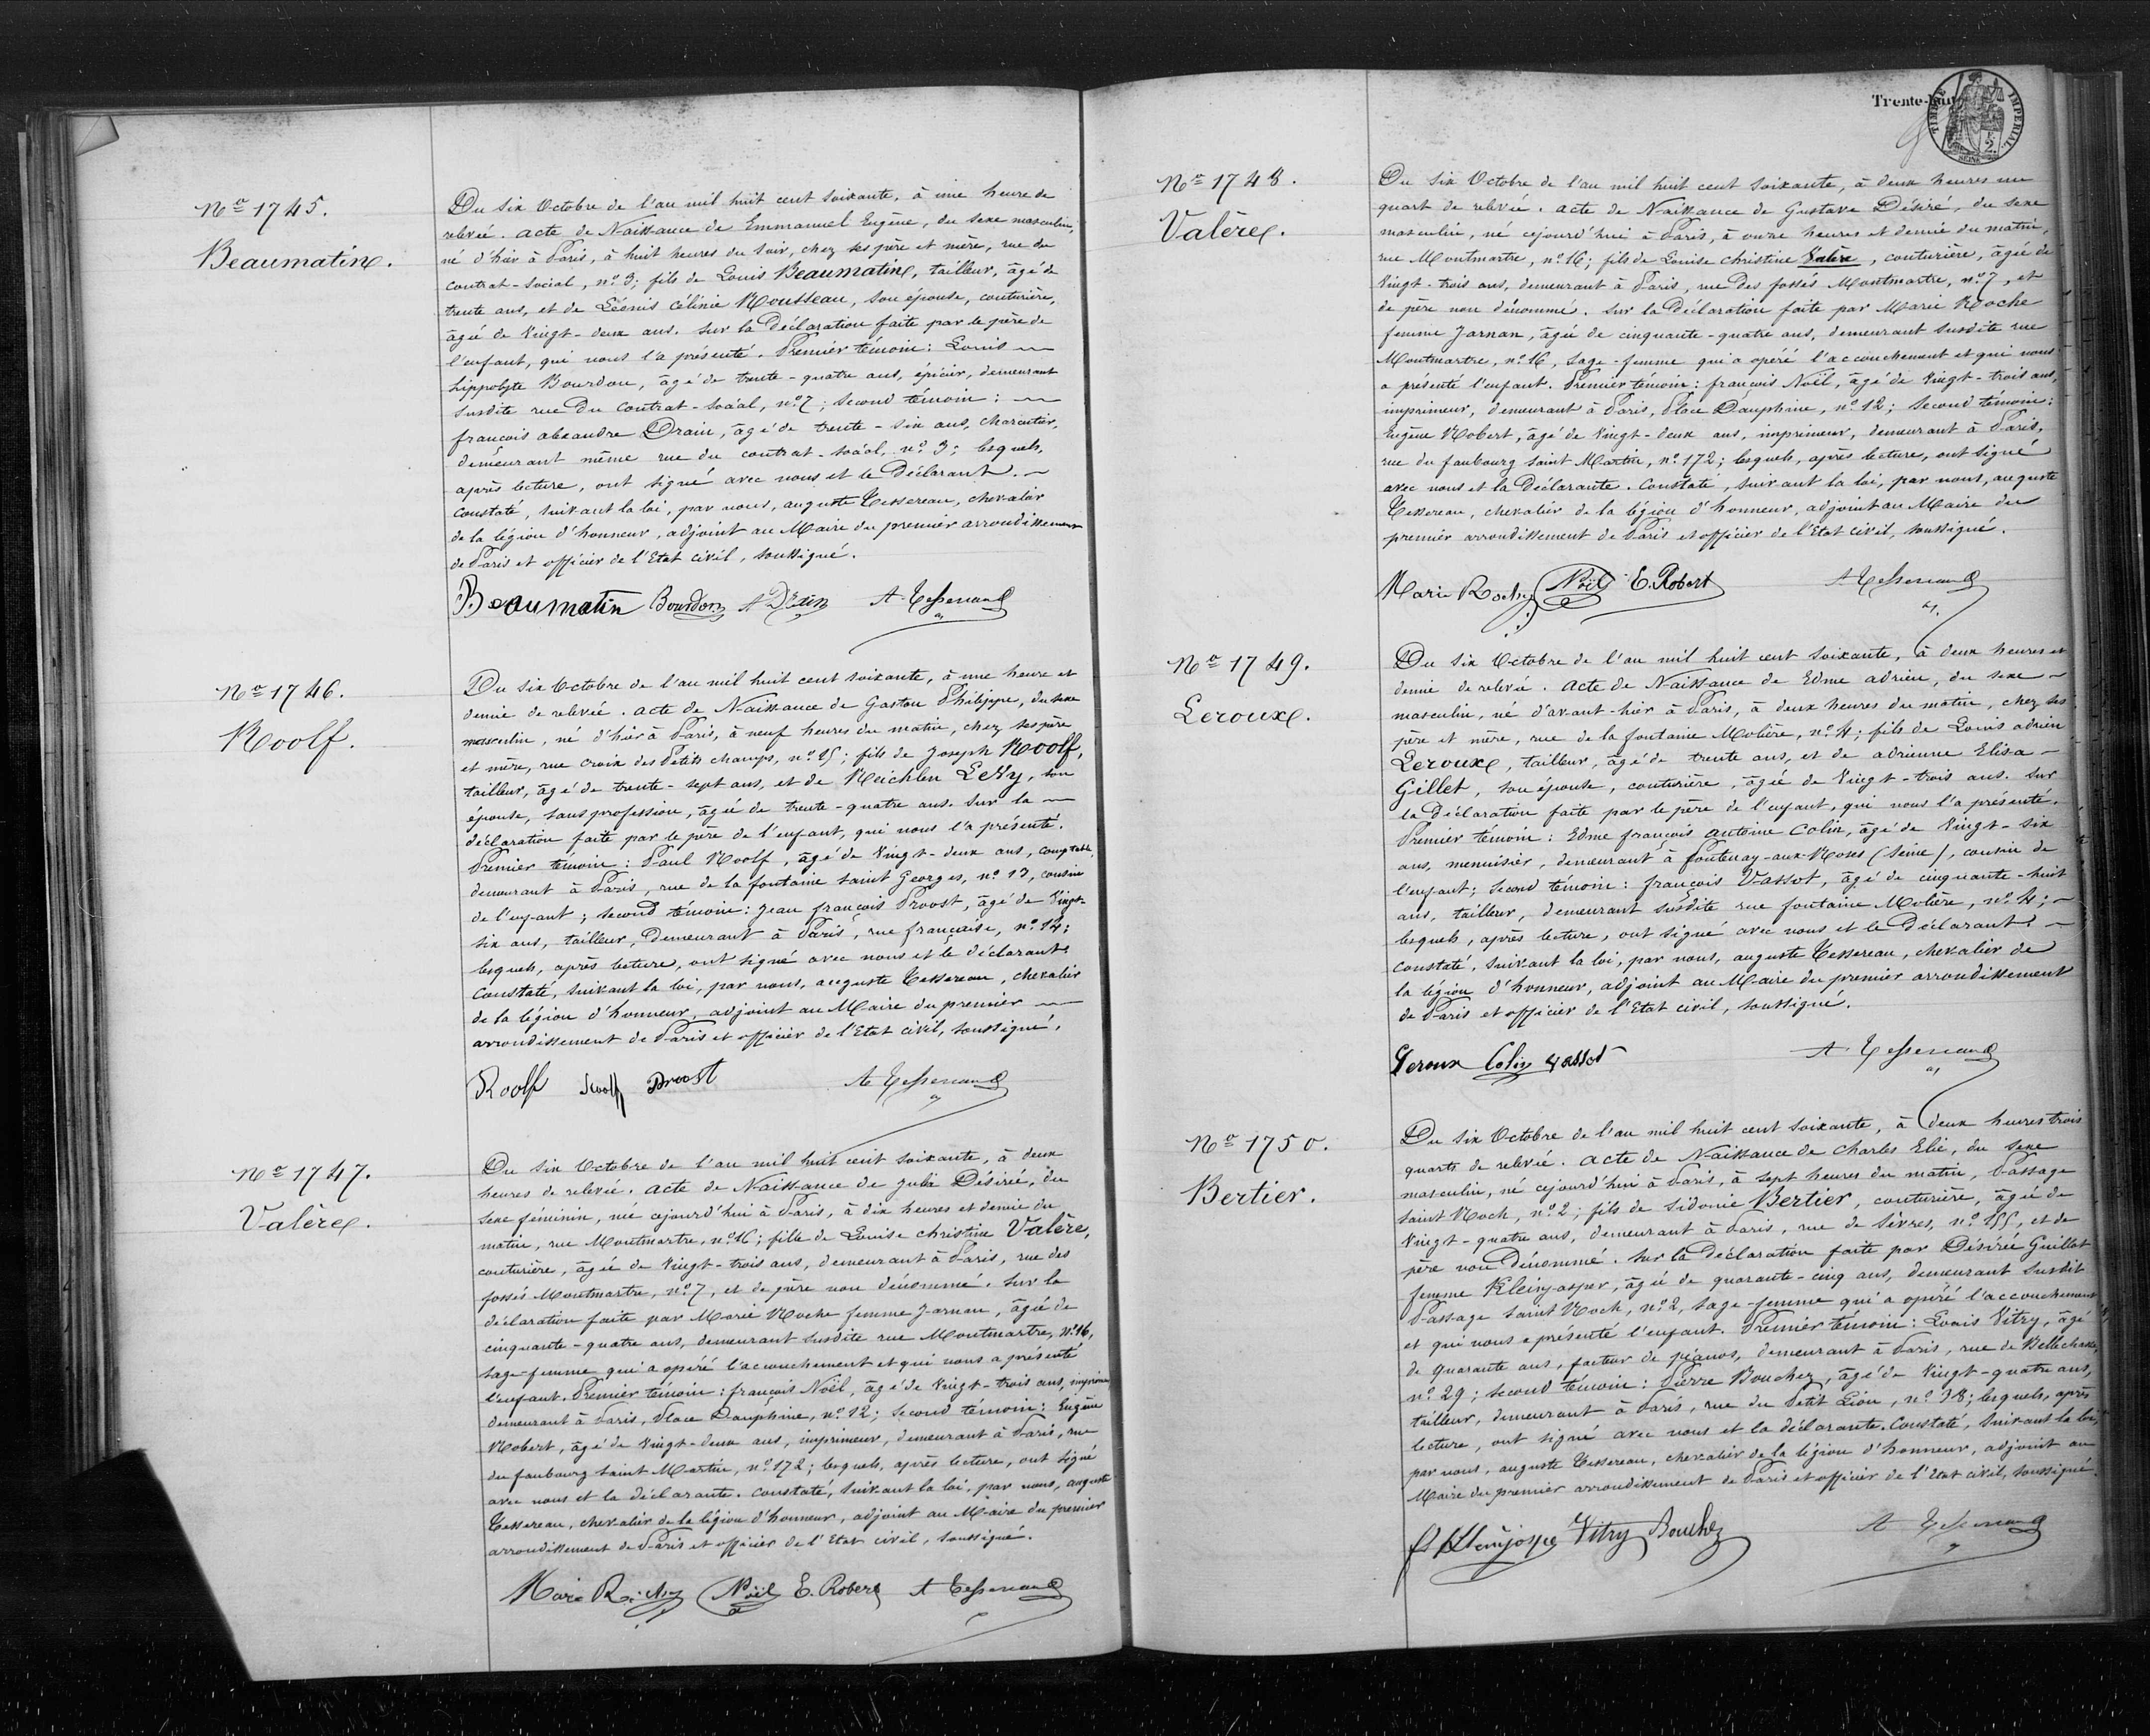 No 1745.
Beaumatin.
Du six Octobre de l'an mil huit cent soixante, à une heure de
relevée. acte de Naissance de Emmanuel Eugène, du sexe masculin,
né d'hier à Paris, à huit heures du soir, chez ses père et mère, rue du
contrat-social, no 3; fils de Louis Beaumatin, tailleur, âgé de
trente ans, et de Léonis Célinie Rousseau, son épouse, couturière,
âgée de Vingt-deux ans. Sur la Déclaration faite par le père de
l'enfant, qui nous l'a présenté. Premier témoin: Louis
hippolyte Bourdon, âgé de trente-quatre ans, épicier, demeurant
susdite rue Du Contrat-Social, no 7; second témoin:
françois alexandre Drain, âgé de trente-six ans, charcutier,
demeurant même rue du contrat-social, no 3; lesquels,
après lecture, ont signé avec nous et le Déclarant.
Constaté, suivant la loi, par nous, auguste Tessereau, chevalier
de la légion d'honneur, adjoint au Maire du premier arrondissement
de Paris et officier de l'Etat civil, soussigné.
Beaumatin Bourdon A Drain A Tessereau
No 1746.
Roolf.
Du six Octobre de l'an mil huit cent soixante, à une heure et
demie de relevée. acte de Naissance de Gaston Philippe, du sexe
masculin, né d'hier à Paris, à neuf heures du matin, chez ses père
et mère, rue croix des Petits champs, no 15; fils de Joseph Roolf,
tailleur, âgé de trente-sept ans, et de Reichlen Levy, son
épouse, sans profession, âgée de trente-quatre ans. Sur la
déclaration faite par le père de l'enfant, qui nous l'a présenté.
Premier témoin: Paul Roolf, âgé de Vingt-deux ans, comptable,
demeurant à Paris, rue de la fontaine saint Georges, no 17, cousin
de l'enfant; second témoin: Jean françois Proost, âgé de Vingt-
six ans, tailleur, Demeurant à Paris, rue française, no 12;
lesquels, après lecture, ont signé avec nous et le déclarant
Constaté, suivant la loi, par nous, auguste Tessereau, chevalier
de la légion d'honneur, adjoint au Maire du premier
arrondissement de Paris et officier de l'Etat civil, soussigné.
Roolf Roolf Proost A Tessereau
No 1747.
Valère.
Du six Octobre de l'an mil huit cent soixante, à deux
heures de relevée. acte de Naissance de Julie Désirée, du
sexe féminin, née cejourd'hui à Paris, à dix heures et demie du
matin, rue Montmartre, no 16; fille de Louise christine Valère,
couturière, âgée de Vingt-trois ans, demeurant à Paris, rue des
fossés Montmartre, no 7, et de père non dénommé. Sur la
déclaration faite par Marie Roche femme Jarnan, âgée de
cinquante-quatre ans, demeurant susdite rue Montmartre, no 16,
sage-femme qui a opéré l'accouchement et qui nous a présenté
l'enfant. Premier témoin: françois Noël, âgé de Vingt-trois ans, imprimeur,
demeurant à Paris, Place Dauphine, no 12; second témoin: Eugène
Robert, âgé de Vingt-deux ans, imprimeur, demeurant à Paris, rue
du faubourg saint Martin, no 172; lesquels, après lecture, ont signé
avec nous et la déclarante. Constaté, suivant la loi, par nous, auguste
Tessereau, chevalier de la légion d'honneur, adjoint au Maire du premier
arrondissement de Paris et officier de l'Etat civil, soussigné.
Marie Roche Noël E. Robert A Tessereau
Trente-huit
TIMBRE IMPERIAL
SEINE
No 1748.
Valère.
Du six Octobre de l'an mil huit cent soixante, à deux heures un
quart de relevée. acte de Naissance de Gustave Désiré, du sexe
masculin, né cejourd'hui à Paris, à onze heures et demie du matin,
rue Montmartre, no 16; fils de Louise christine Valère, couturière, âgée de
Vingt-trois ans, demeurant à Paris, rue Des fossés Montmartre, no 7, et
de père non dénommé. Sur la Déclaration faite par Marie Roche
femme Jarnan, âgée de cinquante-quatre ans, demeurant susdite rue
Montmartre, no 16, sage-femme qui a opéré l'accouchement et qui nous
a présenté l'enfant. Premier témoin: françois Noël, âgé de Vingt-trois ans,
imprimeur, demeurant à Paris, Place Dauphine, no 12; second témoin:
Eugène Robert, âgé de Vingt-deux ans, imprimeur, demeurant à Paris,
rue du faubourg saint Martin, no 172; lesquels, après lecture, ont signé
avec nous et la Déclarante. Constaté, suivant la loi, par nous, auguste
Tessereau, chevalier de la légion d'honneur, adjoint au Maire du
premier arrondissement de Paris et officier de l'Etat civil, soussigné.
Marie Roche Noël E. Robert A Tessereau
No 1749.
Leroux.
Du six Octobre de l'an mil huit cent soixante, à deux heures et
demie de relevée. acte de Naissance de Edme adrien, du sexe
masculin, né d'avant-hier à Paris, à deux heures du matin, chez ses
père et mère, rue de la fontaine Molière, no 4; fils de Louis adrien
Leroux, tailleur, âgé de trente ans, et de adrienne Elisa
Gillet, son épouse, couturière, âgée de Vingt-trois ans. Sur
la Déclaration faite par le père de l'enfant, qui nous l'a présenté.
Premier témoin: Edme françois antoine Colin, âgé de Vingt-six
ans, menuisier, demeurant à fontenay-aux-Roses (Seine), cousin de
l'enfant; second témoin: françois Vassot, âgé de cinquante-huit
ans, tailleur, demeurant susdite rue fontaine Molière, no 4;
lesquels, après lecture, ont signé avec nous et le Déclarant
constaté, suivant la loi, par nous, auguste Tessereau, chevalier de
la légion d'honneur, adjoint au Maire du premier arrondissement
de Paris et officier de l'Etat civil, soussigné.
Leroux Colin Vassot A Tessereau
No 1750.
Bertier.
Du six Octobre de l'an mil huit cent soixante, à deux heures trois
quarts de relevée. acte de Naissance de Charles Elie, du sexe
masculin, né cejourd'hui à Paris, à sept heures du matin, Passage
saint Roch, no 2; fils de Sidonie Bertier, couturière, âgée de
Vingt-quatre ans, demeurant à Paris, rue de sèvres, no 155, et de
père non Dénommé. Sur la Déclaration faite par Désirée Guillot
femme Kleinjasper, âgée de quarante-cinq ans, demeurant susdit
Passage saint Roch, no 2, sage-femme qui a opéré l'accouchement
et qui nous a présenté l'enfant. Premier témoin: Louis Vitry, âgé
de quarante ans, facteur de pianos, demeurant à Paris, rue de Bellechasse,
no 29; second témoin: Pierre Bouchez, âgé de Vingt-quatre ans,
tailleur, demeurant à Paris, rue du Petit Lion, no 38; lesquels, après
lecture, ont signé avec nous et la déclarante. Constaté, suivant la loi,
par nous, auguste Tessereau, chevalier de la légion d'honneur, adjoint au
Maire du premier arrondissement de Paris et officier de l'Etat civil, soussigné.
Vitry Bouchez A Tessereau